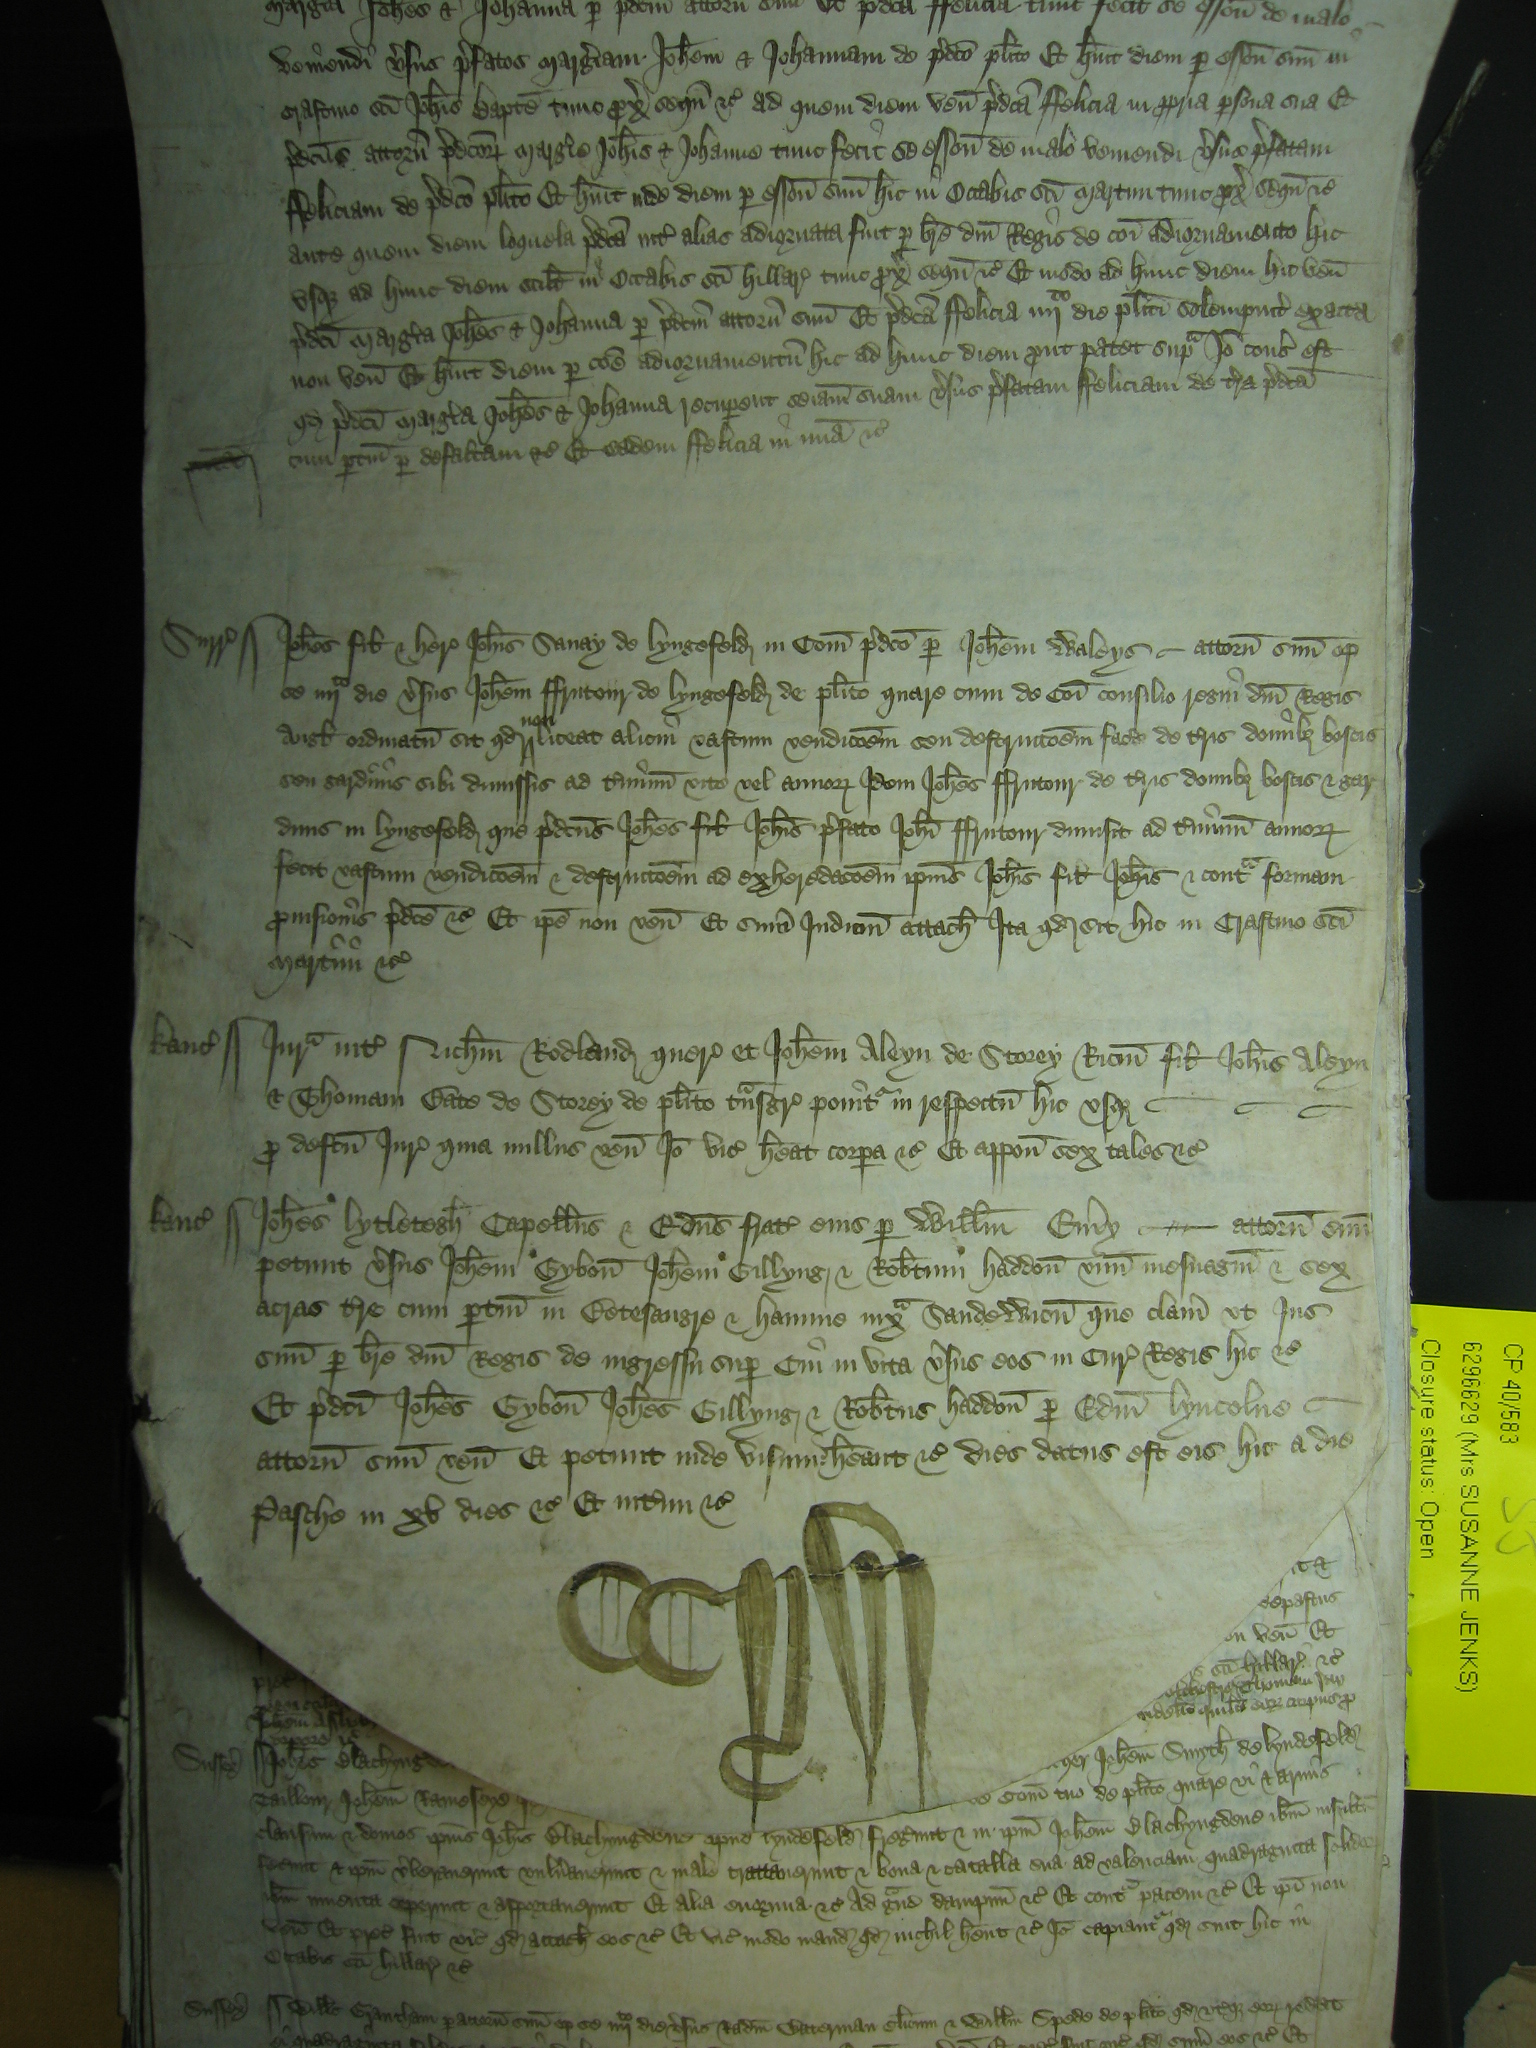 Margia Johes & Johanna p pdcm attorn suu Et pdca ffelicia tunc fecit se esson de malo
veniendi vsus pfatos Margiam Johem & Johannam de pdco plito Et hent diem p esson suu in
crastino sci Johis Bapte tunc px sequ &c ad quem diem ven pdca ffelicia in ppria psona sua Et
pdcus attorn pdcor Margie Johis & Johanne tunc fecit se esson de malo veniendi vsus pfatam
ffeliciam de pdco plito Et hent inde diem p esson suu hic in Octabis sci Martini tunc px sequ &c
ante quem diem loquela pdca int alias adiornata fuit p bre dni Regis de coi adiornamento hic
usq ad hunc diem scilt in Octabis sci Hillar tunc px sequ &c Et modo ad hunc diem hic ven
pdci Margia Johes & Johanna p pdcm attorn suu Et pdca ffelicia iiij to die pliti solempnit exacta
non ven Et hent diem p coe adiornamentu hic ad hunc diem prout patet supa Io cons est
qd pdci Margia Johes & Johanna recupent seiam suam vsus pfatam ffeliciam de tra pdca
cum ptin p defaltam &c Et eadem ffelicia in mia &c
Surr Johes fil & her Johis Sanay de Lyngefeld in Com pdco p Johem Waleys attorn suu op
se iiij to die vsus Johem ffrutour de Lyngefeld de plito quare cum de coi consilio regni dni Regis
Angl ordinatu sit qd non liceat alicui vastum vendicoem seu destruccoem face de tris domibz boscis
seu gardinis sibi dimissis ad tminu vite vel annor Idem Johes ffrutour de tris domibz boscis & gar
dinis in Lyngefeld que pdcus Johes fil Johis pfato Johi ffrutour dimisit ad tminu annor
fecit vastum vendicoem & destruccoem ad exheredacoem ipius Johis fil Johis & conta formam
puisionis pdce &c Et ipe non ven Et sum Judicm attach Ita qd sit hic in Crastino sci
Martini &c
Kanc Jura int Richm Rodland quer et Johem Aleyn de Storey Ricm fil Johis Aleyn
& Thomam Bate de Storey de plito tnsgr ponit in respectu hic usq
p defcu Jur quia nullus ven Io vic heat corpa &c Et appon sex tales &c
Kanc Johes Lytletogh Capellus & Edus frat eius p Willm Emy attorn suu
petunt vsus Johem Gybon Johem Gillyng & Robtum Haddon unu mesuagiu & sex
acras tre cum ptin in Eetesangre & Hamme iuxa Sandewicu que clam ut Jus
suu p bre dni Regis de ingressu sup Cui in vita vsus eos in Cur Regis hic &c
Et pdci Johes Gybon Johes Gillyng & Robtus Haddon p Edm Lyncolne
attorn suu ven Et petunt inde visum heant &c dies datus est eis hic a die
Pasche in xv dies &c Et intim &c
CCiiij
Sussex Johes Blachyng
Johem Smyth de Lyndefeld
Taillour Johem Rameseye
Com tuo de plito quare vi & armis
clausum & domos ipius Johis Blachyngdene apud Lyndefeld fregunt & in ipm Johem Blachyngdene ibm insultu
fecunt & ipm vberaverunt vulnaverunt & male tractaverunt & bona & catalla sua ad valenciam quadraginta solidor
ibm inventa ceperunt & asportaverunt Et alia enormia &c Ad gave dampnu &c Et conta pacem &c Et ipi non
ven Et prec fuit vic qd attach eos &c Et vic modo mand qd nichil hent &c Io capiant qd sint hic in
Octabis sci Hillar &c
Sussex Wills Grantham p attorn suu op se iiij to die vsus Radm Waterman Clicum & Willm Spede de plito qd uterq eor reddat
CP 40/583
6296629 (Mrs SUSANNE JENKS)
Closure status: Open